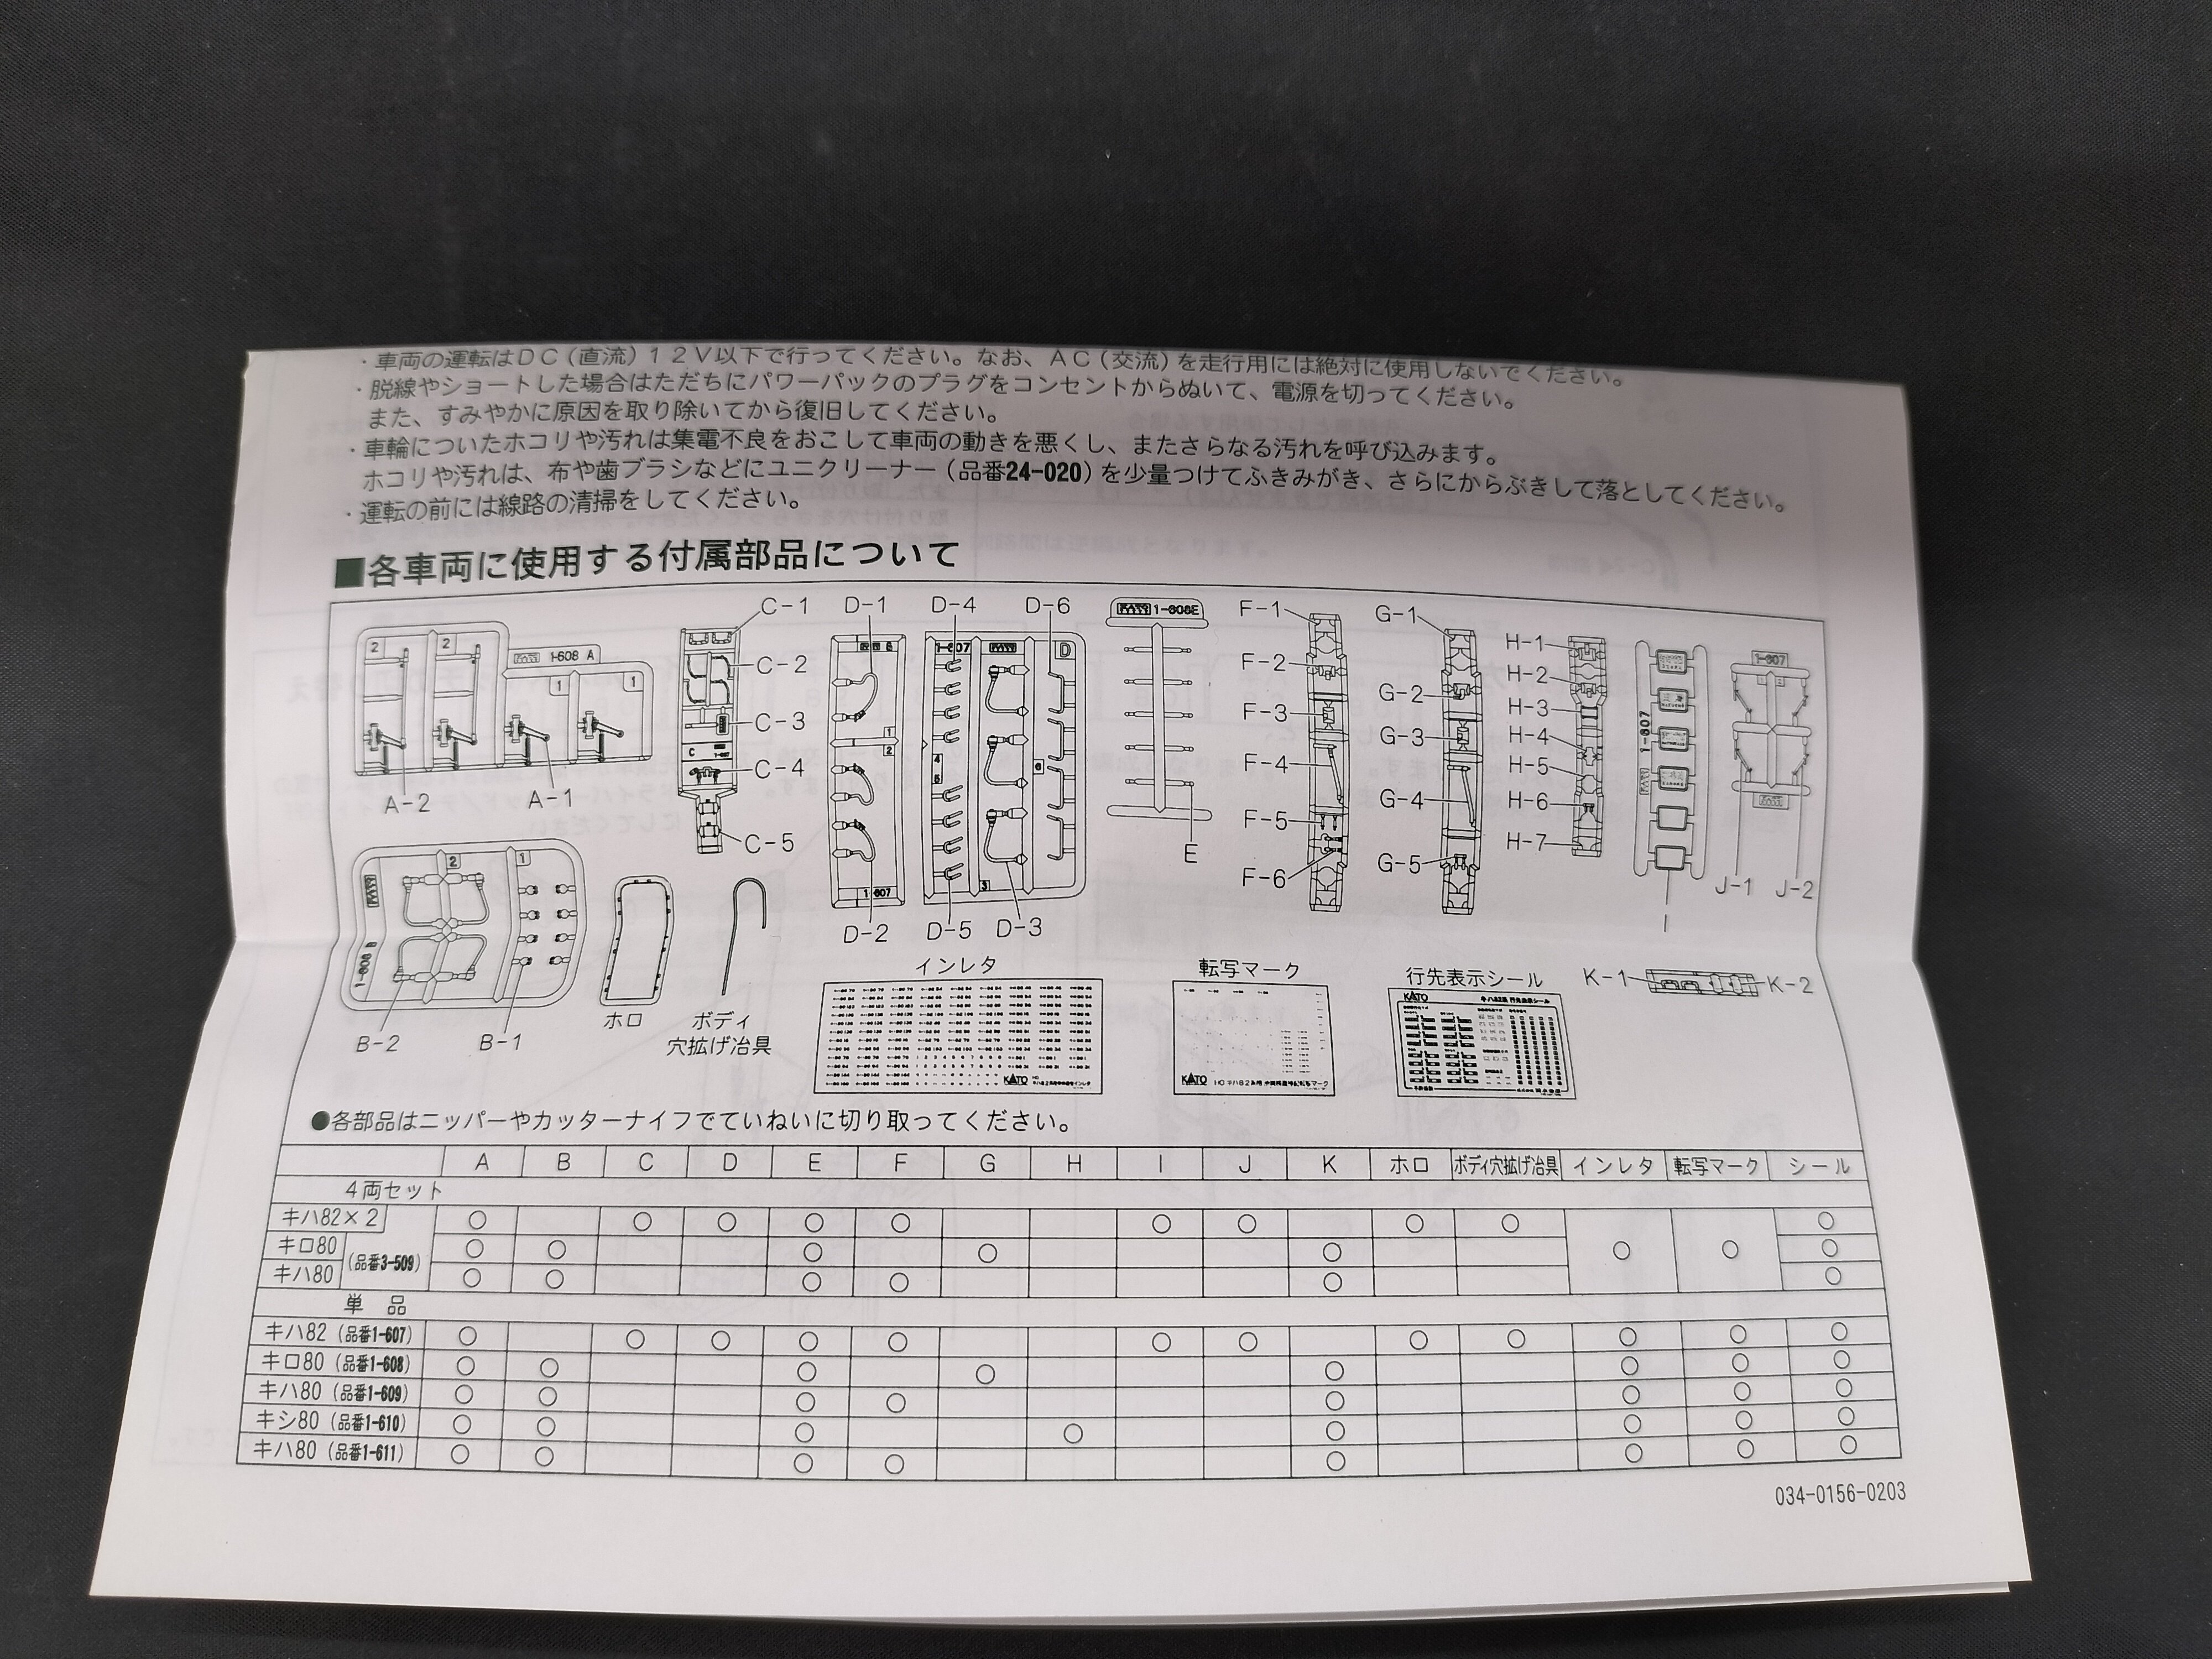 ・車両の運転はＤＣ（直流）１２Ｖ以下で行ってください。なお、ＡＣ（交流）を走行用には絶対に使用しないでください。
・脱線やショートした場合はただちにパワーパックのプラグをコンセントからぬいて、電源を切ってください。
また、すみやかに原因を取り除いてから復旧してください。
・車輪についたホコリや汚れは集電不良をおこして車両の動きを悪くし、またさらなる汚れを呼び込みます。
ホコリや汚れは、布や歯ブラシなどにユニクリーナー（品番24-020）を少量つけてふきみがき、さらにからぶきして落としてください。
・運転の前には線路の清掃をしてください。
■各車両に使用する付属部品について
2 2 1-608 A 1 1
A-2 A-1
C-1
C-2
C-3
C
C-4
C-5
D-1 D-4 D-6
1-607 D
1
2
4
5
6
3
1-607
D-2 D-5 D-3
1-608E
E
F-1
F-2
F-3
F-4
F-5
F-6
G-1
G-2
G-3
G-4
G-5
H-1
H-2
H-3
H-4
H-5
H-6
H-7
1-607
I
1-607
J-1 J-2
2 1
1-608 B
B-2 B-1
ホロ
ボディ
穴拡げ冶具
インレタ
KATO
転写マーク
KATO
行先表示シール
KATO キハ82系 行先表示シール
K-1 K-2
●各部品はニッパーやカッターナイフでていねいに切り取ってください。
A B C D E F G H I J K ホロ ボディ穴拡げ冶具 インレタ 転写マーク シール
４両セット
キハ82×２ ○ ○ ○ ○ ○ ○ ○ ○ ○ ○
キロ80 (品番3-509) ○ ○ ○ ○ ○ ○ ○ ○
キハ80 ○ ○ ○ ○ ○ ○
単 品
キハ82（品番1-607） ○ ○ ○ ○ ○ ○ ○ ○ ○ ○ ○ ○
キロ80（品番1-608） ○ ○ ○ ○ ○ ○ ○ ○
キハ80（品番1-609） ○ ○ ○ ○ ○ ○ ○ ○
キシ80（品番1-610） ○ ○ ○ ○ ○ ○ ○ ○
キハ80（品番1-611） ○ ○ ○ ○ ○ ○ ○ ○
034-0156-0203